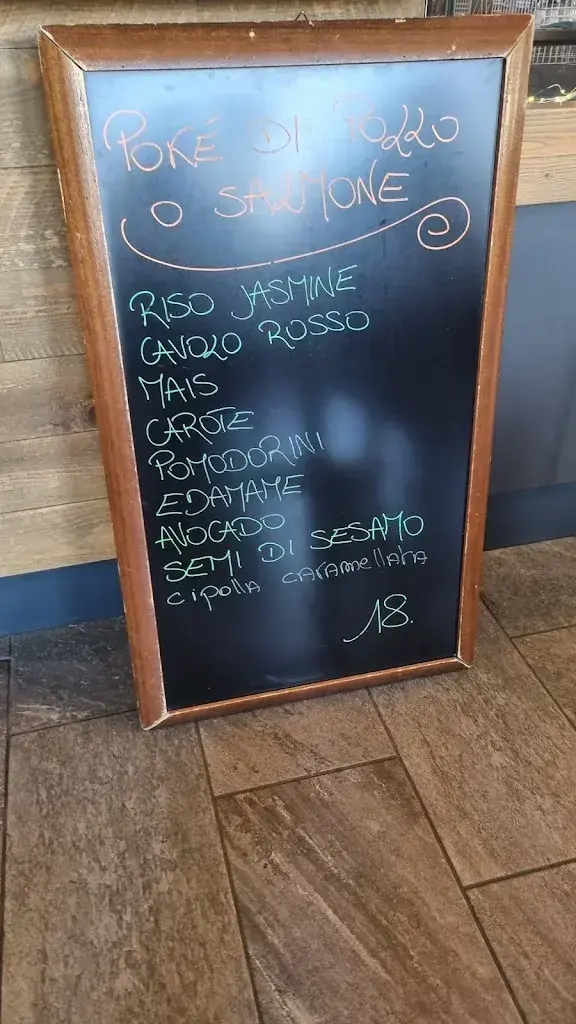 POKÉ DI POLLO
O SALMONE
RISO JASMINE
CAVOLO ROSSO
MAIS
CAROTE
POMODORINI
EDAMAME
AVOCADO
SEMI DI SESAMO
cipolla caramellata
18.